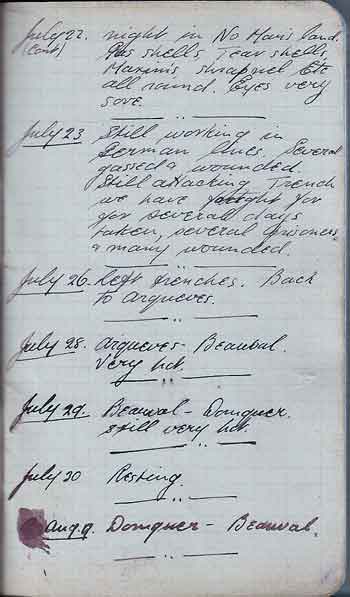 July 22. night in No Man's land.
(cont) Gas shells, Tear shells,
Maxims shrapnel Etc
all round. Eyes very
sore.
July 23 Still working in
German lines. Several
gassed & wounded.
Still attacking Trench
we have fought for
for several days
taken, several prisoners
& many wounded.
July 26. Left trenches. Back
to Arqueves.
July 28. Arqueves - Beauval.
Very hot.
July 29. Beauval - Domquer.
still very hot.
July 20 Resting.
Aug. 9. Domquer - Beauval.